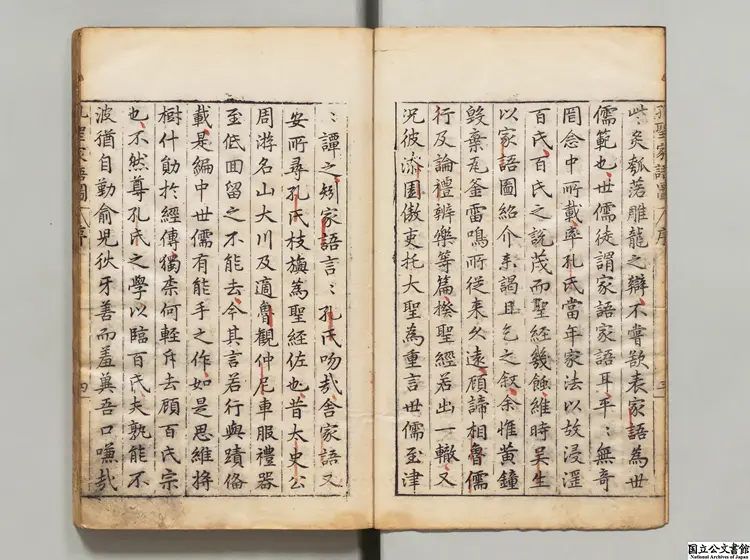 孔聖家語圖 序 三
此炙瓠落雕龍之辯不嘗欲表家語為世
儒範也世儒徒謂家語家語耳平:無奇
罔念中所載率孔氏當年家法以故浸淫
百氏百氏之說茂而聖經幾蝕維時吳生
以家語圖紹介來謁且乞之叙余惟黃鐘
毀棄瓦釜雷鳴所從来久遠顧諦相魯儒
行及論禮辨樂等篇揆聖經若出一轍又
况彼漆園傲吏托大聖為重言世儒至津
:譚之矧家語言:孔氏吻㢤舍家語又
安所尋孔氏枝旟為聖經佐也昔太史公
周游名山大川及適魯觀仲尼車服禮器
至低回留之不能去今其言若行與蹟俻
載是編中世儒有能手之作如是思維將
樹什勛於經傳獨柰何輕斥去顧百氏宗
也不然尊孔氏之學以臨百氏夫孰能不
波猶自勤俞兒狄牙善而羞吾口嗛㢤
孔聖家語圖 序 四
国立公文書館
National Archives of Japan